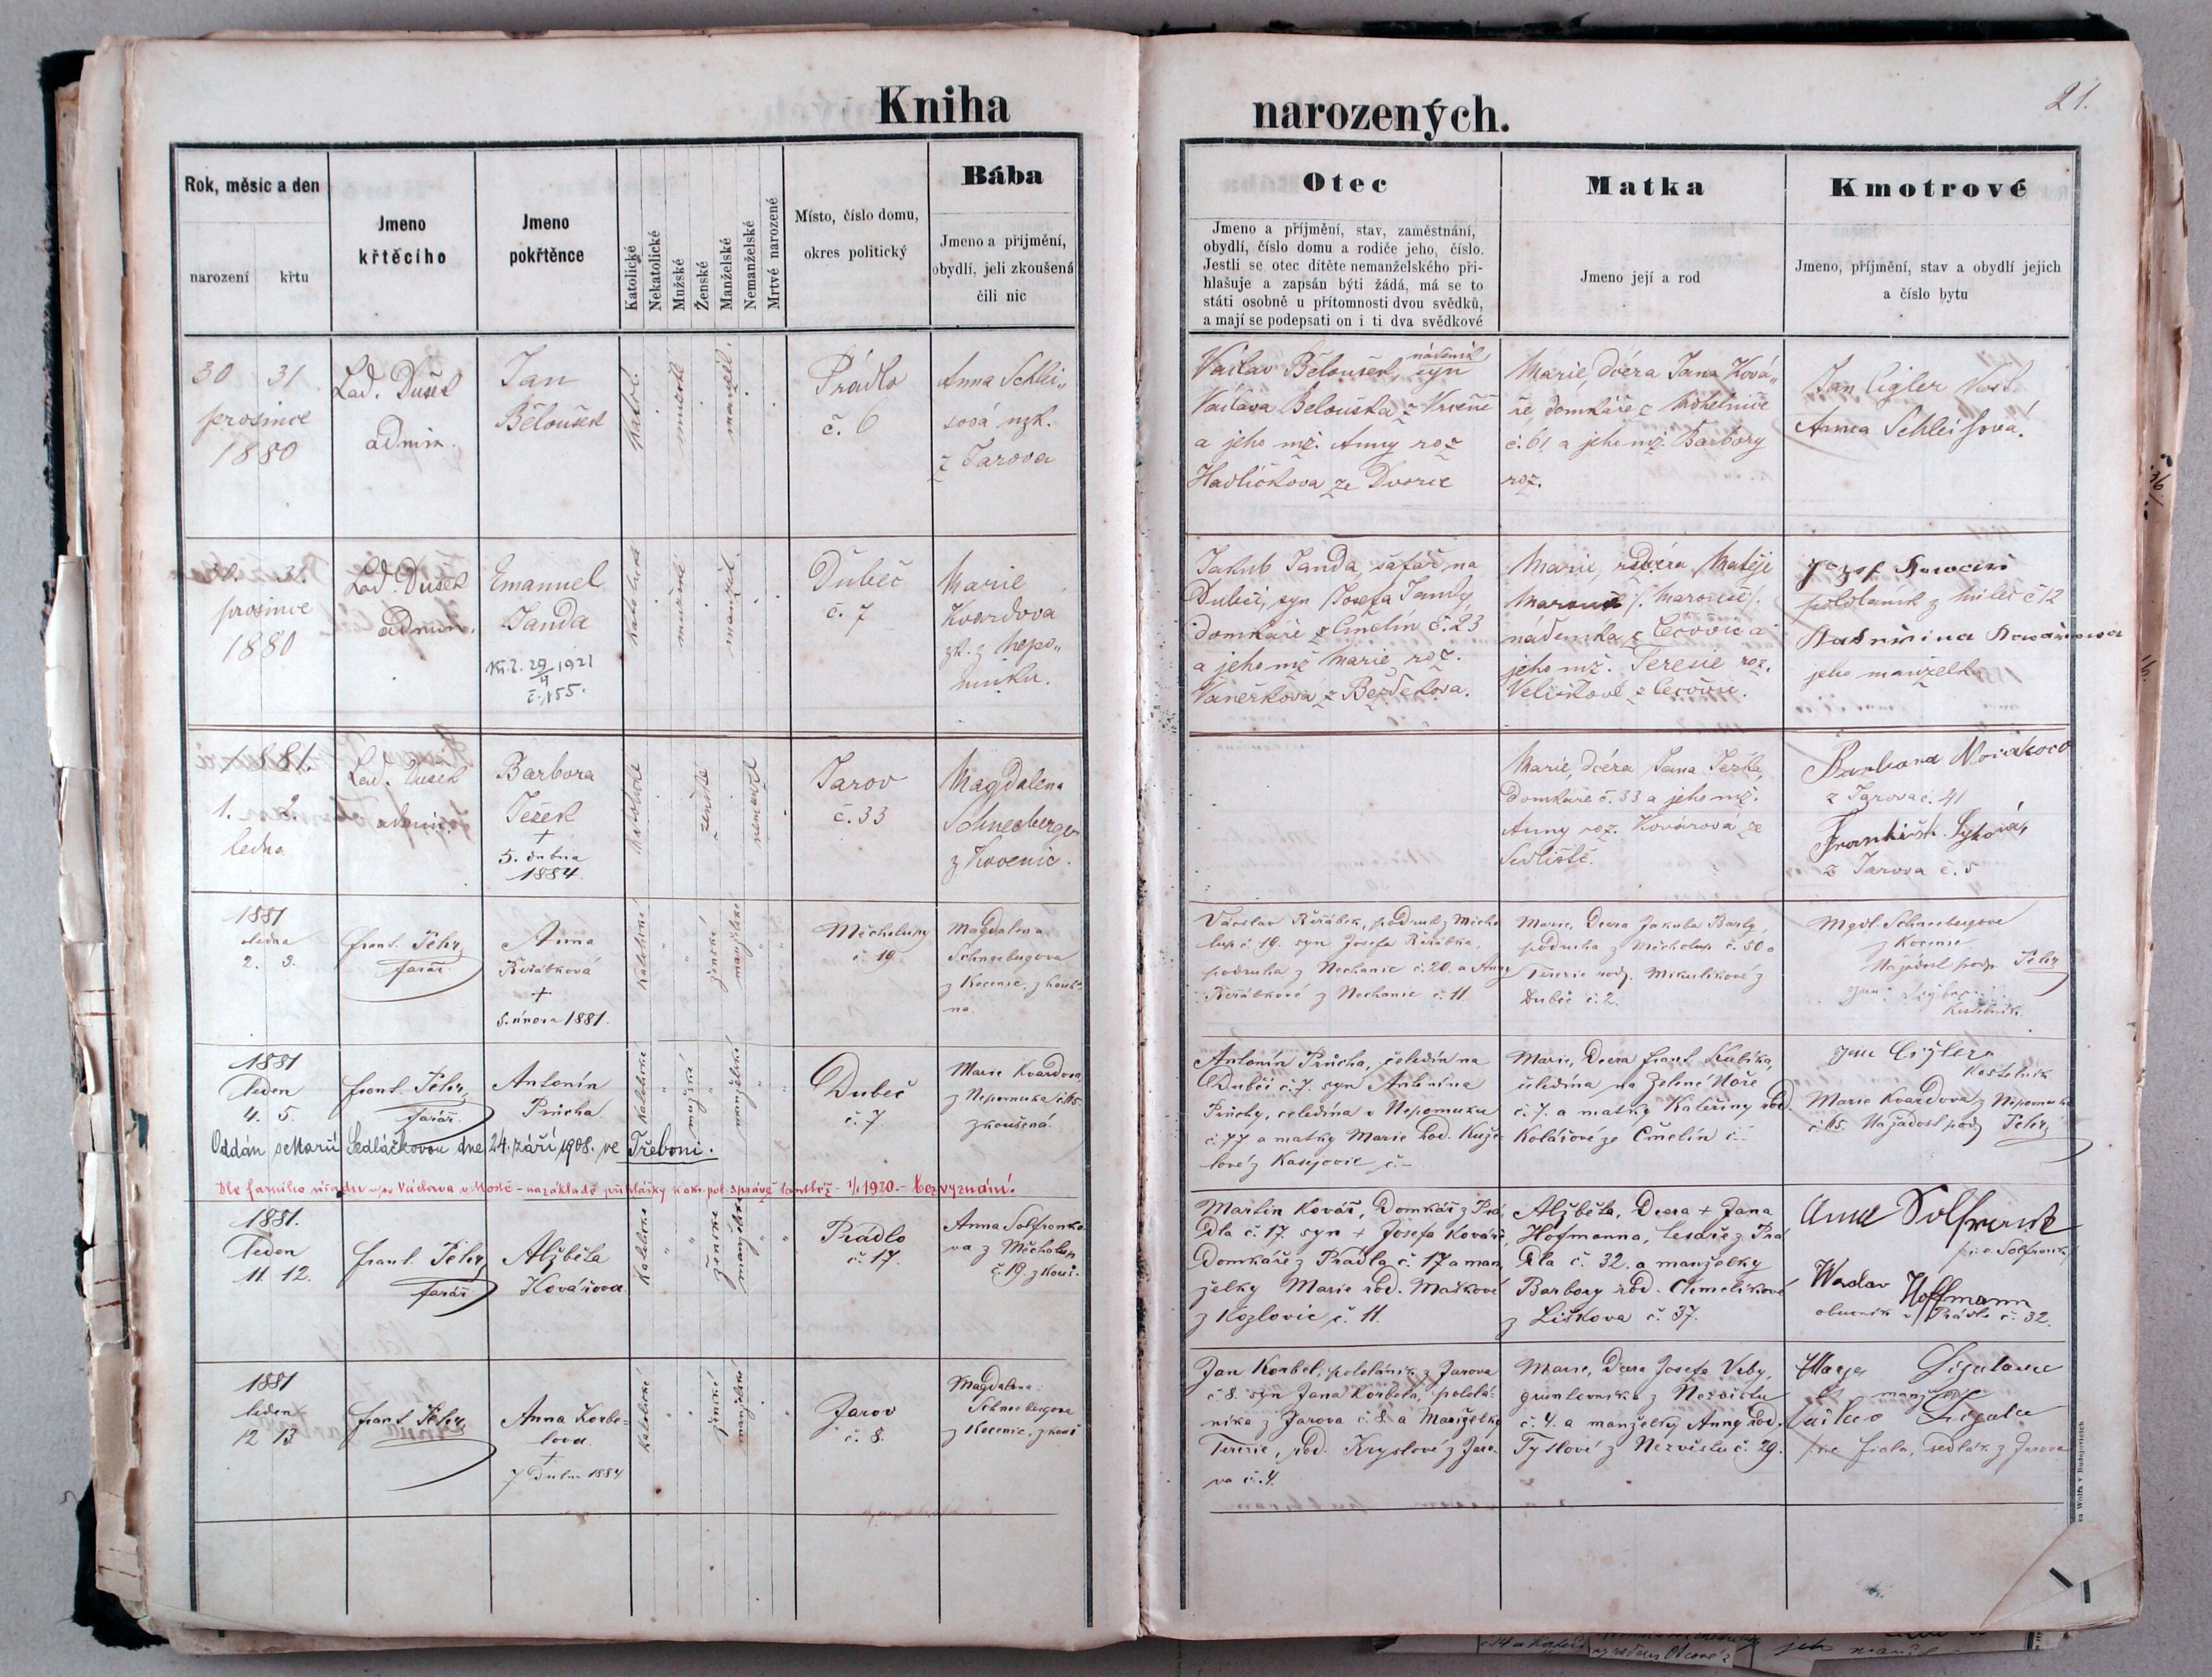 Kniha
narozených.
21.
Rok, měsíc a den
narození
křtu
Jmeno
křtěcího
Jmeno
pokřtěnce
Katolické
Nekatolické
Mužské
Ženské
Manželské
Nemanželské
Mrtvé narozené
Místo, číslo domu,
okres politický
Bába
Jmeno a příjmění,
obydlí, jeli zkoušená
čili nic
Otec
Jmeno a příjmění, stav, zaměstnání,
obydlí, číslo domu a rodiče jeho, číslo.
Jestli se otec dítěte nemanželského při-
hlašuje a zapsán býti žádá, má se to
státi osobně u přítomnosti dvou svědků,
a mají se podepsati on i ti dva svědkové
Matka
Jmeno její a rod
Kmotrové
Jmeno, příjmění, stav a obydlí jejich
a číslo bytu
30 31
prosince
1880
Lad. Dušek
admin.
Jan
Běloušek
Katol.
mužské
manžel.
Prádlo
č. 6
Anna Schlei„
sová
z Jarova
nádeník
Václav Běloušek, syn
Václava Belouška z Vrčeně
a jeho mž. Anny roz
Havlíčkova ze Dvorce
Marie, dcéra Jana Ková„
ře, domkáře z
č. 61 a jeho mž. Barbory
roz.
Jan Cigler
Anna Schleissová.
31.
prosince
1880
Lad. Dušek
admin.
Emanuel
Janda
29/4 1921
č. 155.
mužské
manžel.
Dubeč
č. 7
Marie
Kvardova
zk. z Nepo„
muku.
Jakub Janda, šafář na
Dubči, syn Josefa Jandy
domkáře z Čmelín č. 23
a jeho mž Marie roz.
Vaněrkova z Bezdekova.
Marie, dcéra Matěje
nádeníka z Cecovic a
jeho mž. Terezie roz.
Veliškové z Cecovic.
Jozef
půlolaník z č 12
Kateřina
jeho manželka
1881.
1. 2.
ledna
Lad. Dušek
admin.
Barbora
Ježek
+
5. dubna
1884.
ženské
Jarov
č. 33
Magdalena
Schneeberger
z Kocenic.
Marie, dcéra Jana Ježka,
domkáře č. 33 a jeho mž.
Anny roz. Kovárová ze
Sedliště.
Barbora Novakova
z Jarova č. 41
Frantiśek Sykora,
z Jarova č. 5
1881
ledna
2. 3.
frant. Pehr,
farář.
Anna
Řeřábková
+
5. února 1881.
katolické
ženské
manželské
Měcholupy
č. 19
Magdalena
Schneebergova
z Kocenic, z kouše-
na.
Václav Řeřábek, podruh z Mícho
lup č. 19. syn Josefa Řeřábka,
podruha z Nechanic č. 20. a Anny
Řeřábkové z Nechanic č. 11.
Marie, Dcera Jakuba Barty,
podruha z Měcholup č. 50 a
Terezie rodz. Mikulikové z
Dubče č. 2.
Mgdl. Schneebergova
z Kocenic
Na žádost podp. Pehr
Kostelník
1881
leden
4. 5.
frant. Pehr,
farář.
Antonín
Průcha
katolické
mužské
manželské
Dubeč
č. 7.
Marie Kvardova,
z Nepomuka č. 65.
zkoušená
Antonín Průcha, čeledín na
Dubči č. 7. syn Antonína
Průchy, čeledína v Nepomuku
č. 77 a matky Marie rod. Kuže-
lové z Kasejovic č.-
Marie, Dcera frant. Kubíka,
čeledína na Zelené Hoře
č. 7. a matky Kateřiny rod.
Kolářové ze Čmelín č.-
Jan Cigler
Kostelník
Marie Kvardova z Nepomuku
č. 65. Na žádost podp Pehr,
Oddán s Marií Sedláčkovou dne 24. září 1908. ve Třeboni.
Dle farního úřadu u sv. Václava v Mostě - na základě přihlášky k okr. pol. správě tamtéž - 1/1 1920. - bez vyznání.
1881.
leden
11. 12.
frant. Pehr,
farář
Alžběta
Kovářova
katolické
ženské
manželské
Prádlo
č. 17.
Anna Solfronko-
va z Měcholup
č. 19. z kouš.
Martin Kovář, Domkář z Prá
dla č. 17. syn + Josefa Kováře,
Domkáře z Prádla č. 17 a man
želky Marie rod. Maškové
z Kozlovic č. 11.
Alžběta, Dcera + Jana
Hofmanna, tesaře z Prá
dla č. 32. a manželky
Barbory rod. Chmelikové
z Liškova č. 37.
Anna Solfronk
Waclav Hoffmann
obuvník z Prádla č. 32.
1881
leden
12 13
frant Pehr,
Anna Korbe-
lova.
+
7 Dubna 1884
katolické
ženské
manželské
Jarov
č. 8.
Magdalena
Schneebergova
z Kocenic, z kouš
Jan Korbel, pololáník z Jarova
č. 8. syn Jana Korbela, pololá-
níka z Jarova č. 8. a Manželky
Terezie, rod. Kryslové z Jaro
va č. 4.
Marie, Dcera Josefa Vrby,
gruntovníka z Nezvěstu
č. 4. a manželky Anny rod.
Tyslové z Nezvěstu č. 29.
fiala, sedlák z Jarova